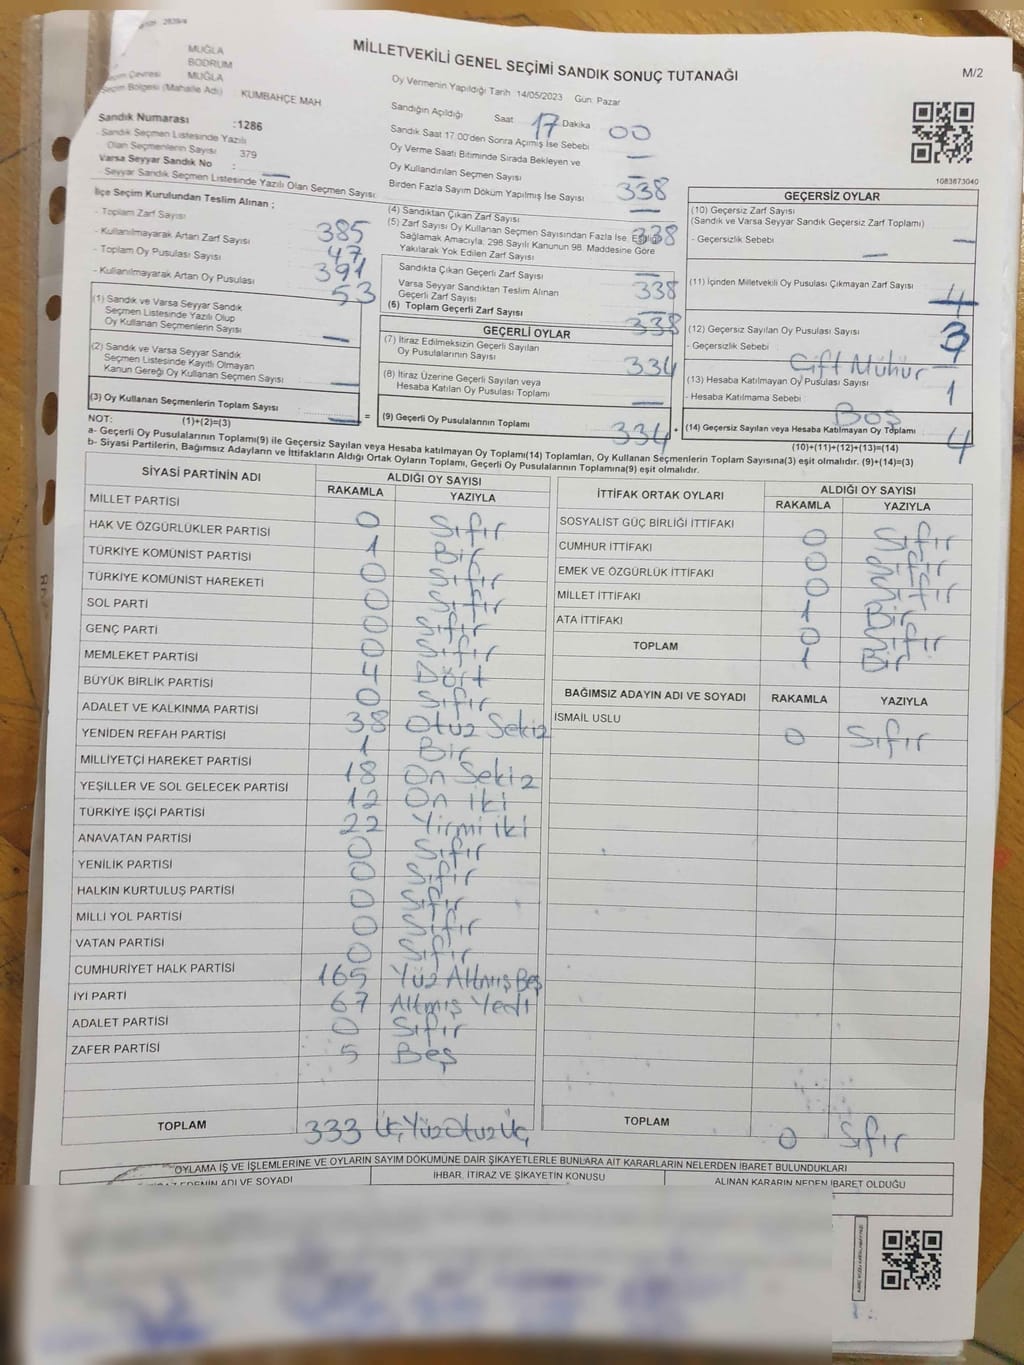 MİLLETVEKİLİ GENEL SEÇİMİ SANDIK SONUÇ TUTANAĞI
M/2
MUĞLA
BODRUM
Seçim Çevresi MUĞLA
Seçim Bölgesi (Mahalle Adı) KUMBAHÇE MAH
Sandık Numarası :1286
- Sandık Seçmen Listesinde Yazılı
Olan Seçmenlerin Sayısı 379
Varsa Seyyar Sandık No :
- Seyyar Sandık Seçmen Listesinde Yazılı Olan Seçmen Sayısı
İlçe Seçim Kurulundan Teslim Alınan ;
- Toplam Zarf Sayısı 385
- Kullanılmayarak Artan Zarf Sayısı 47
- Toplam Oy Pusulası Sayısı 391
- Kullanılmayarak Artan Oy Pusulası 53
(1) Sandık ve Varsa Seyyar Sandık
Seçmen Listesinde Yazılı Olup
Oy Kullanan Seçmenlerin Sayısı —
(2) Sandık ve Varsa Seyyar Sandık
Seçmen Listesinde Kayıtlı Olmayan
Kanun Gereği Oy Kullanan Seçmen Sayısı —
(3) Oy Kullanan Seçmenlerin Toplam Sayısı
(1)+(2)=(3) — =
Oy Vermenin Yapıldığı Tarih 14/05/2023 Gün: Pazar
Sandığın Açıldığı Saat 17 Dakika 00
Sandık Saat 17.00'den Sonra Açımış İse Sebebi —
Oy Verme Saati Bitiminde Sırada Bekleyen ve
Oy Kullandırılan Seçmen Sayısı
Birden Fazla Sayım Döküm Yapılmış İse Sayısı 338
(4) Sandıktan Çıkan Zarf Sayısı —
(5) Zarf Sayısı Oy Kullanan Seçmen Sayısından Fazla İse, Eşitliği 338
Sağlamak Amacıyla, 298 Sayılı Kanunun 98. Maddesine Göre
Yakılarak Yok Edilen Zarf Sayısı
Sandıkta Çıkan Geçerli Zarf Sayısı —
Varsa Seyyar Sandıktan Teslim Alınan 338
Geçerli Zarf Sayısı
(6) Toplam Geçerli Zarf Sayısı 338
GEÇERLİ OYLAR
(7) İtiraz Edilmeksizin Geçerli Sayılan
Oy Pusulalarının Sayısı 334
(8) İtiraz Üzerine Geçerli Sayılan veya
Hesaba Katılan Oy Pusulası Toplamı —
(9) Geçerli Oy Pusulalarının Toplamı 334 +
1083673040
GEÇERSİZ OYLAR
(10) Geçersiz Zarf Sayısı
(Sandık ve Varsa Seyyar Sandık Geçersiz Zarf Toplamı)
- Geçersizlik Sebebi — —
(11) İçinden Milletvekili Oy Pusulası Çıkmayan Zarf Sayısı
(12) Geçersiz Sayılan Oy Pusulası Sayısı 3
- Geçersizlik Sebebi Çift Mühür
(13) Hesaba Katılmayan Oy Pusulası Sayısı 1
- Hesaba Katılmama Sebebi Boş
(14) Geçersiz Sayılan veya Hesaba Katılmayan Oy Toplamı 4
(10)+(11)+(12)+(13)=(14)
NOT:
a- Geçerli Oy Pusulalarının Toplamı(9) ile Geçersiz Sayılan veya Hesaba katılmayan Oy Toplamı(14) Toplamları, Oy Kullanan Seçmenlerin Toplam Sayısına(3) eşit olmalıdır. (9)+(14)=(3)
b- Siyasi Partilerin, Bağımsız Adayların ve İttifakların Aldığı Ortak Oyların Toplamı, Geçerli Oy Pusulalarının Toplamına(9) eşit olmalıdır.
SİYASİ PARTİNİN ADI ALDIĞI OY SAYISI
RAKAMLA YAZIYLA
MİLLET PARTİSİ 0 Sıfır
HAK VE ÖZGÜRLÜKLER PARTİSİ 1 Bir
TÜRKİYE KOMÜNİST PARTİSİ 0 Sıfır
TÜRKİYE KOMÜNİST HAREKETİ 0 Sıfır
SOL PARTİ 0 Sıfır
GENÇ PARTİ 0 Sıfır
MEMLEKET PARTİSİ 4 Dört
BÜYÜK BİRLİK PARTİSİ 0 Sıfır
ADALET VE KALKINMA PARTİSİ 38 Otuz Sekiz
YENİDEN REFAH PARTİSİ 1 Bir
MİLLİYETÇİ HAREKET PARTİSİ 18 On Sekiz
YEŞİLLER VE SOL GELECEK PARTİSİ 12 On iki
TÜRKİYE İŞÇİ PARTİSİ 22 Yirmi iki
ANAVATAN PARTİSİ 0 Sıfır
YENİLİK PARTİSİ 0 Sıfır
HALKIN KURTULUŞ PARTİSİ 0 Sıfır
MİLLİ YOL PARTİSİ 0 Sıfır
VATAN PARTİSİ 0 Sıfır
CUMHURİYET HALK PARTİSİ 165 Yüz Altmış Beş
İYİ PARTİ 67 Altmış Yedi
ADALET PARTİSİ 0 Sıfır
ZAFER PARTİSİ 5 Beş
TOPLAM 333 Üç Yüz Otuz Üç
İTTİFAK ORTAK OYLARI ALDIĞI OY SAYISI
RAKAMLA YAZIYLA
SOSYALİST GÜÇ BİRLİĞİ İTTİFAKI 0 Sıfır
CUMHUR İTTİFAKI 0 Sıfır
EMEK VE ÖZGÜRLÜK İTTİFAKI 0 Sıfır
MİLLET İTTİFAKI 1 Bir
ATA İTTİFAKI 0 Sıfır
TOPLAM 1 Bir
BAĞIMSIZ ADAYIN ADI VE SOYADI RAKAMLA YAZIYLA
İSMAİL USLU 0 Sıfır
TOPLAM 0 Sıfır
OYLAMA İŞ VE İŞLEMLERİNE VE OYLARIN SAYIM DÖKÜMÜNE DAİR ŞİKAYETLERLE BUNLARA AİT KARARLARIN NELERDEN İBARET BULUNDUKLARI
ADI VE SOYADI İHBAR, İTİRAZ VE ŞİKAYETİN KONUSU ALINAN KARARIN NEDEN İBARET OLDUĞU